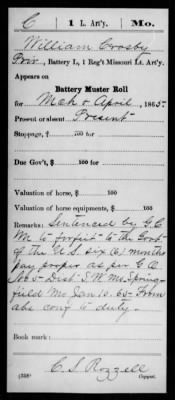 C | 1 L. Art'y. | Mo.
William Crosby
Priv., Battery L, 1 Reg't Missouri Lt. Art'y.
Appears on
Battery Muster Roll
for Mch & April, 1865.
Present or absent Present
Stoppage, $ 100 for
Due Gov't, $ 100 for
Valuation of horse, $ 100
Valuation of horse equipments, $ 100
Remarks: Sentenced by G.C.
M. to forfeit to the Govt
of the U.S. six (6) months
pay proper as per G.O.
No 5 Dist S.W. Mo. Spring-
field Mo Jan 15. 65 From
abs conf to duty.
Book mark:
C. S. Rozzell
(358) Copyist.